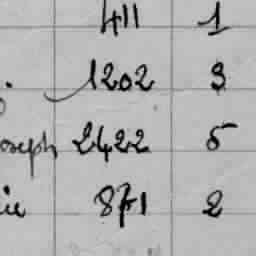 411 1
1202 3
oseph 2422 5
ie 871 2